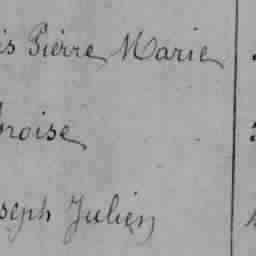 is Pierre Marie
broise
seph Julien